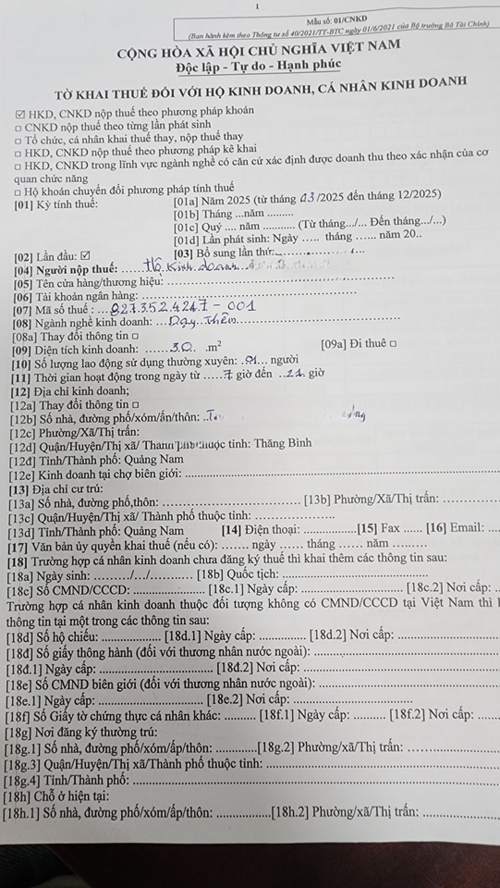 1
Mẫu số: 01/CNKD
(Ban hành kèm theo Thông tư số 40/2021/TT-BTC ngày 01/6/2021 của Bộ trưởng Bộ Tài Chính)
CỘNG HÒA XÃ HỘI CHỦ NGHĨA VIỆT NAM
Độc lập - Tự do - Hạnh phúc
TỜ KHAI THUẾ ĐỐI VỚI HỘ KINH DOANH, CÁ NHÂN KINH DOANH
☑ HKD, CNKD nộp thuế theo phương pháp khoán
□ CNKD nộp thuế theo từng lần phát sinh
□ Tổ chức, cá nhân khai thuế thay, nộp thuế thay
□ HKD, CNKD nộp thuế theo phương pháp kê khai
□ HKD, CNKD trong lĩnh vực ngành nghề có căn cứ xác định được doanh thu theo xác nhận của cơ
quan chức năng
□ Hộ khoán chuyển đổi phương pháp tính thuế
[01] Kỳ tính thuế: [01a] Năm 2025 (từ tháng 03/2025 đến tháng 12/2025)
[01b] Tháng ...năm .........
[01c] Quý .... năm ........... (Từ tháng.../... Đến tháng.../...)
[01d] Lần phát sinh: Ngày ..... tháng ...... năm 20..
[02] Lần đầu: ☑ [03] Bổ sung lần thứ:..................
[04] Người nộp thuế: ......Hộ Kinh doanh
[05] Tên cửa hàng/thương hiệu: ..................
[06] Tài khoản ngân hàng: ..................
[07] Mã số thuế : ...8273524247 - 001
[08] Ngành nghề kinh doanh: ...Dạy Thêm..................
[08a] Thay đổi thông tin □
[09] Diện tích kinh doanh: .......30.. .m² [09a] Đi thuê □
[10] Số lượng lao động sử dụng thường xuyên: .01... người
[11] Thời gian hoạt động trong ngày từ .....7 giờ đến ..21. giờ
[12] Địa chỉ kinh doanh;
[12a] Thay đổi thông tin □
[12b] Số nhà, đường phố/xóm/ấn/thôn: ..
[12c] Phường/Xã/Thị trấn:
[12d] Quận/Huyện/Thị xã/ Thành phố thuộc tỉnh: Thăng Bình
[12đ] Tỉnh/Thành phố: Quảng Nam
[12e] Kinh doanh tại chợ biên giới: ..................
[13] Địa chỉ cư trú:
[13a] Số nhà, đường phố,thôn: .................. [13b] Phường/Xã/Thị trấn: ..........
[13c] Quận/Huyện/Thị xã/ Thành phố thuộc tỉnh: ..................
[13d] Tỉnh/Thành phố: Quảng Nam [14] Điện thoại: ................[15] Fax ...... [16] Email: ....
[17] Văn bản ủy quyền khai thuế (nếu có): ....... ngày ...... tháng ...... năm .........
[18] Trường hợp cá nhân kinh doanh chưa đăng ký thuế thì khai thêm các thông tin sau:
[18a] Ngày sinh: ........./.../........... [18b] Quốc tịch: ..................
[18c] Số CMND/CCCD: .................. [18c.1] Ngày cấp: .................. [18c.2] Nơi cấp: ..
Trường hợp cá nhân kinh doanh thuộc đối tượng không có CMND/CCCD tại Việt Nam thì
thông tin tại một trong các thông tin sau:
[18d] Số hộ chiếu: ............... [18d.1] Ngày cấp: ............ [18d.2] Nơi cấp: ..................
[18đ] Số giấy thông hành (đối với thương nhân nước ngoài): ..................
[18đ.1] Ngày cấp: .................. [18đ.2] Nơi cấp: ..................
[18e] Số CMND biên giới (đối với thương nhân nước ngoài): ..................
[18e.1] Ngày cấp: .................. [18e.2] Nơi cấp: ..................
[18f] Số Giấy tờ chứng thực cá nhân khác: .......... [18f.1] Ngày cấp: .......... [18f.2] Nơi cấp: ......
[18g] Nơi đăng ký thường trú:
[18g.1] Số nhà, đường phố/xóm/ấp/thôn: .............[18g.2] Phường/xã/Thị trấn: ..................
[18g.3] Quận/Huyện/Thị xã/Thành phố thuộc tỉnh: ..................
[18g.4] Tỉnh/Thành phố: ..................
[18h] Chỗ ở hiện tại:
[18h.1] Số nhà, đường phố/xóm/ấp/thôn: ..................[18h.2] Phường/xã/Thị trấn: ..........